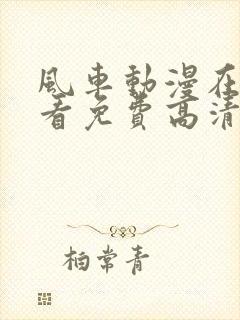 風車動漫在
看免費高清
柏常青